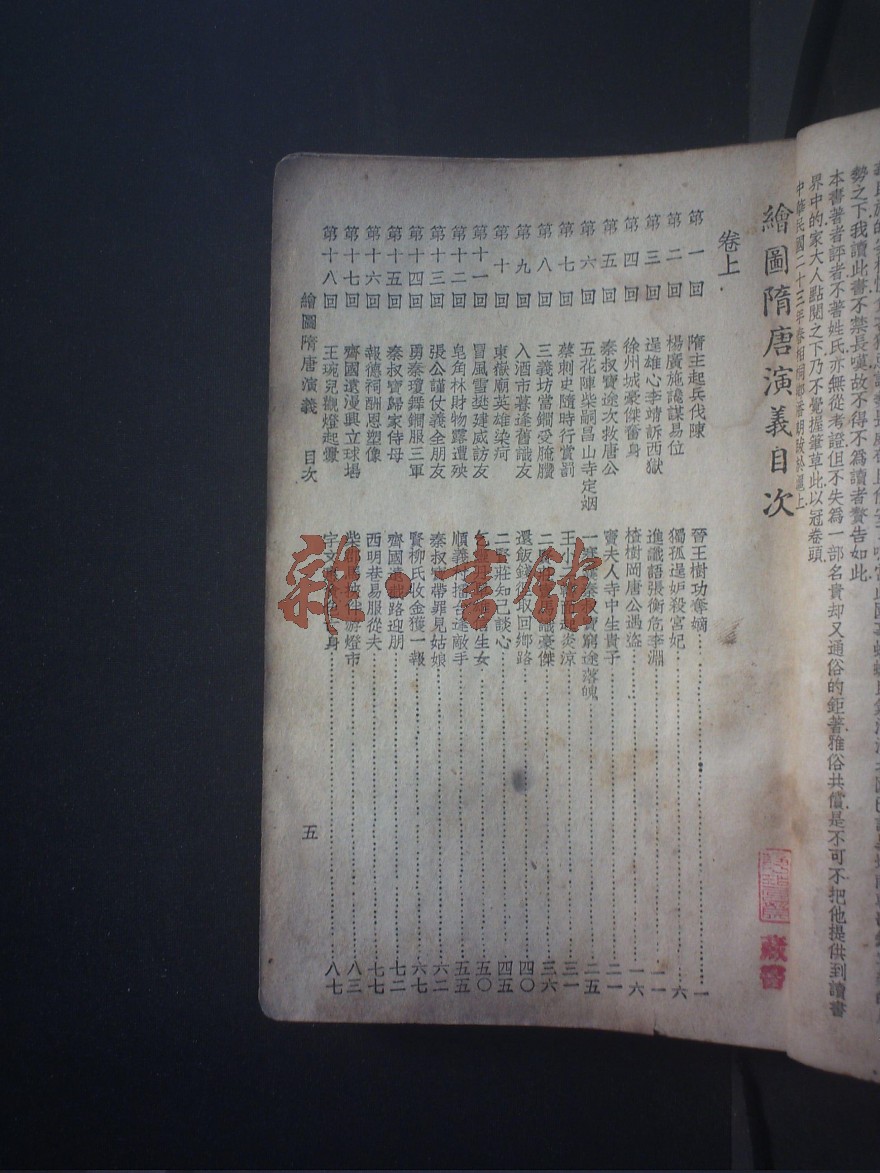 勢之下我讀此書不禁長嘆故不得不為讀者警告如此
本書著者評者不著姓氏亦無從考證但不失為一部名貴却又通俗的鉅著雅俗共償是不可不把他提供到讀書
界中的家大人點閱之下乃不覺握筆草此以冠卷頭
中華民國二十三年春
繪圖隋唐演義目次
卷上
第一回 隋主起兵伐陳 晉王樹功奪嫡 一
第二回 楊廣施讒謀易位 獨孤逞妒殺宮妃 六
第三回 逞雄心李靖訴西嶽 進讖語張衡危李淵 一一
第四回 徐州城豪傑奮身 楂樹岡唐公遇盜 一六
第五回 秦叔寶途次救唐公 竇夫人寺中生貴子 二一
第六回 五花陣柴嗣昌山寺定姻 一 窮途落魄 二五
第七回 蔡刺史隨時行賞罰 王小 炎涼 三一
第八回 三義坊當鐧受腌臢 二 識豪傑 三六
第九回 入酒市暮逢舊識友 還飯錢 取回鄉路 四〇
第十回 東嶽廟英雄染疴 二賢莊知己談心 四五
第十一回 冒風雪樊建威訪友 生女 五〇
第十二回 皂角林財物露遭殃 順義村擂台逢敵手 五五
第十三回 張公謹仗義全朋友 秦叔寶帶罪見姑娘 六二
第十四回 勇秦瓊舞鐧服三軍 賢柳氏收金獲一報 六七
第十五回 秦叔寶歸家侍母 齊國遠截路迎朋 七二
第十六回 報德祠酬恩塑像 西明巷易服從夫 七七
第十七回 齊國遠漫興立球場 柴郡 游燈市 八三
第十八回 王琬兒觀燈起釁 宇文 身 八七
繪圖隋唐演義 目次 五
藏書
雜·書館